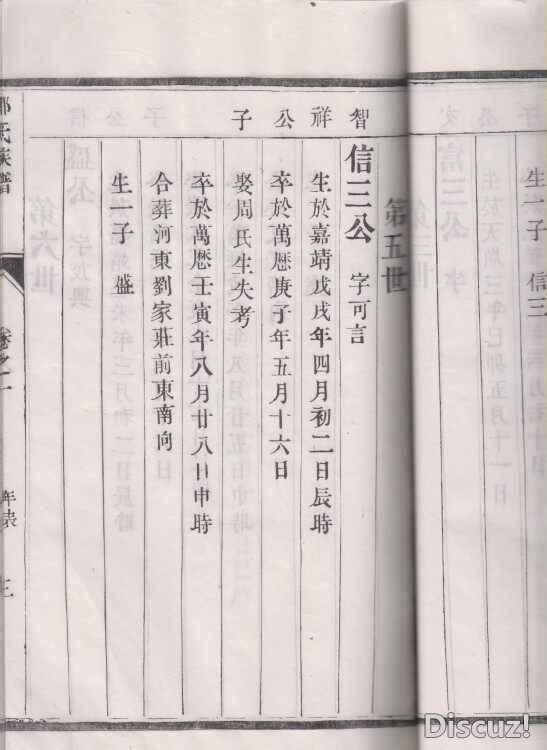 生一子 信三
第五世
智祥公子
信三公 字可言
生於嘉靖戊戌年四月初二日辰時
卒於萬曆庚子年五月十六日
娶周氏生失考
卒於萬曆壬寅年八月廿八日申時
合葬河東劉家莊前東南向
生一子 盛
氏族譜
卷之一
年表
Discuz!